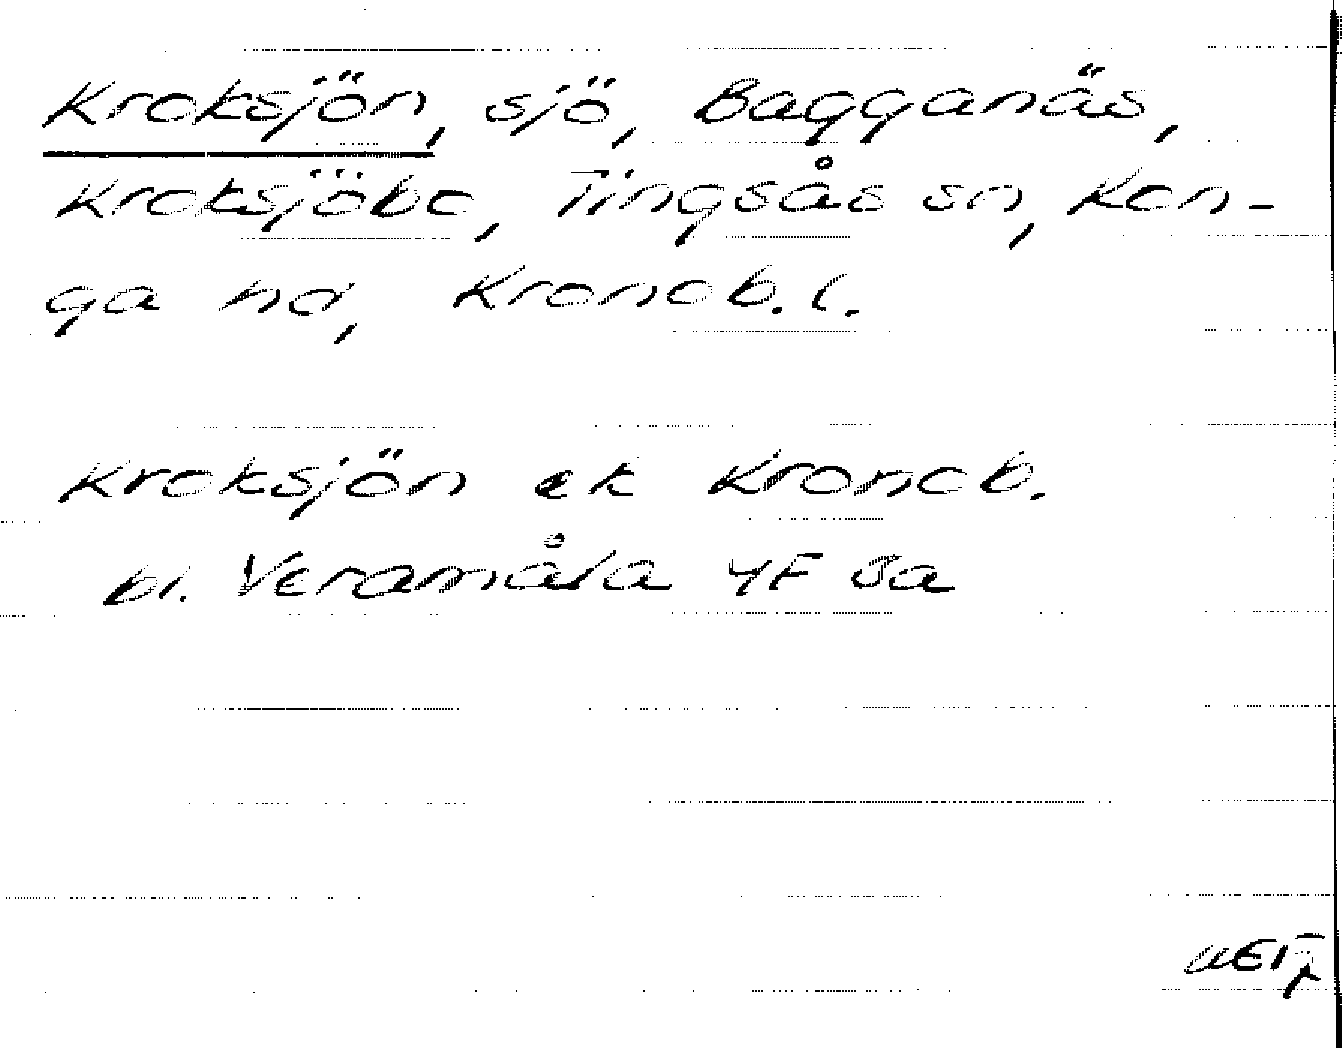 Kroksjön, sjö, Bagganäs,
Kroksjöbo, Tingsås sn, Kon-
ga hd, Kronob. l.
Kroksjön ek Kronob.
bl. Veramåla 4F 3a